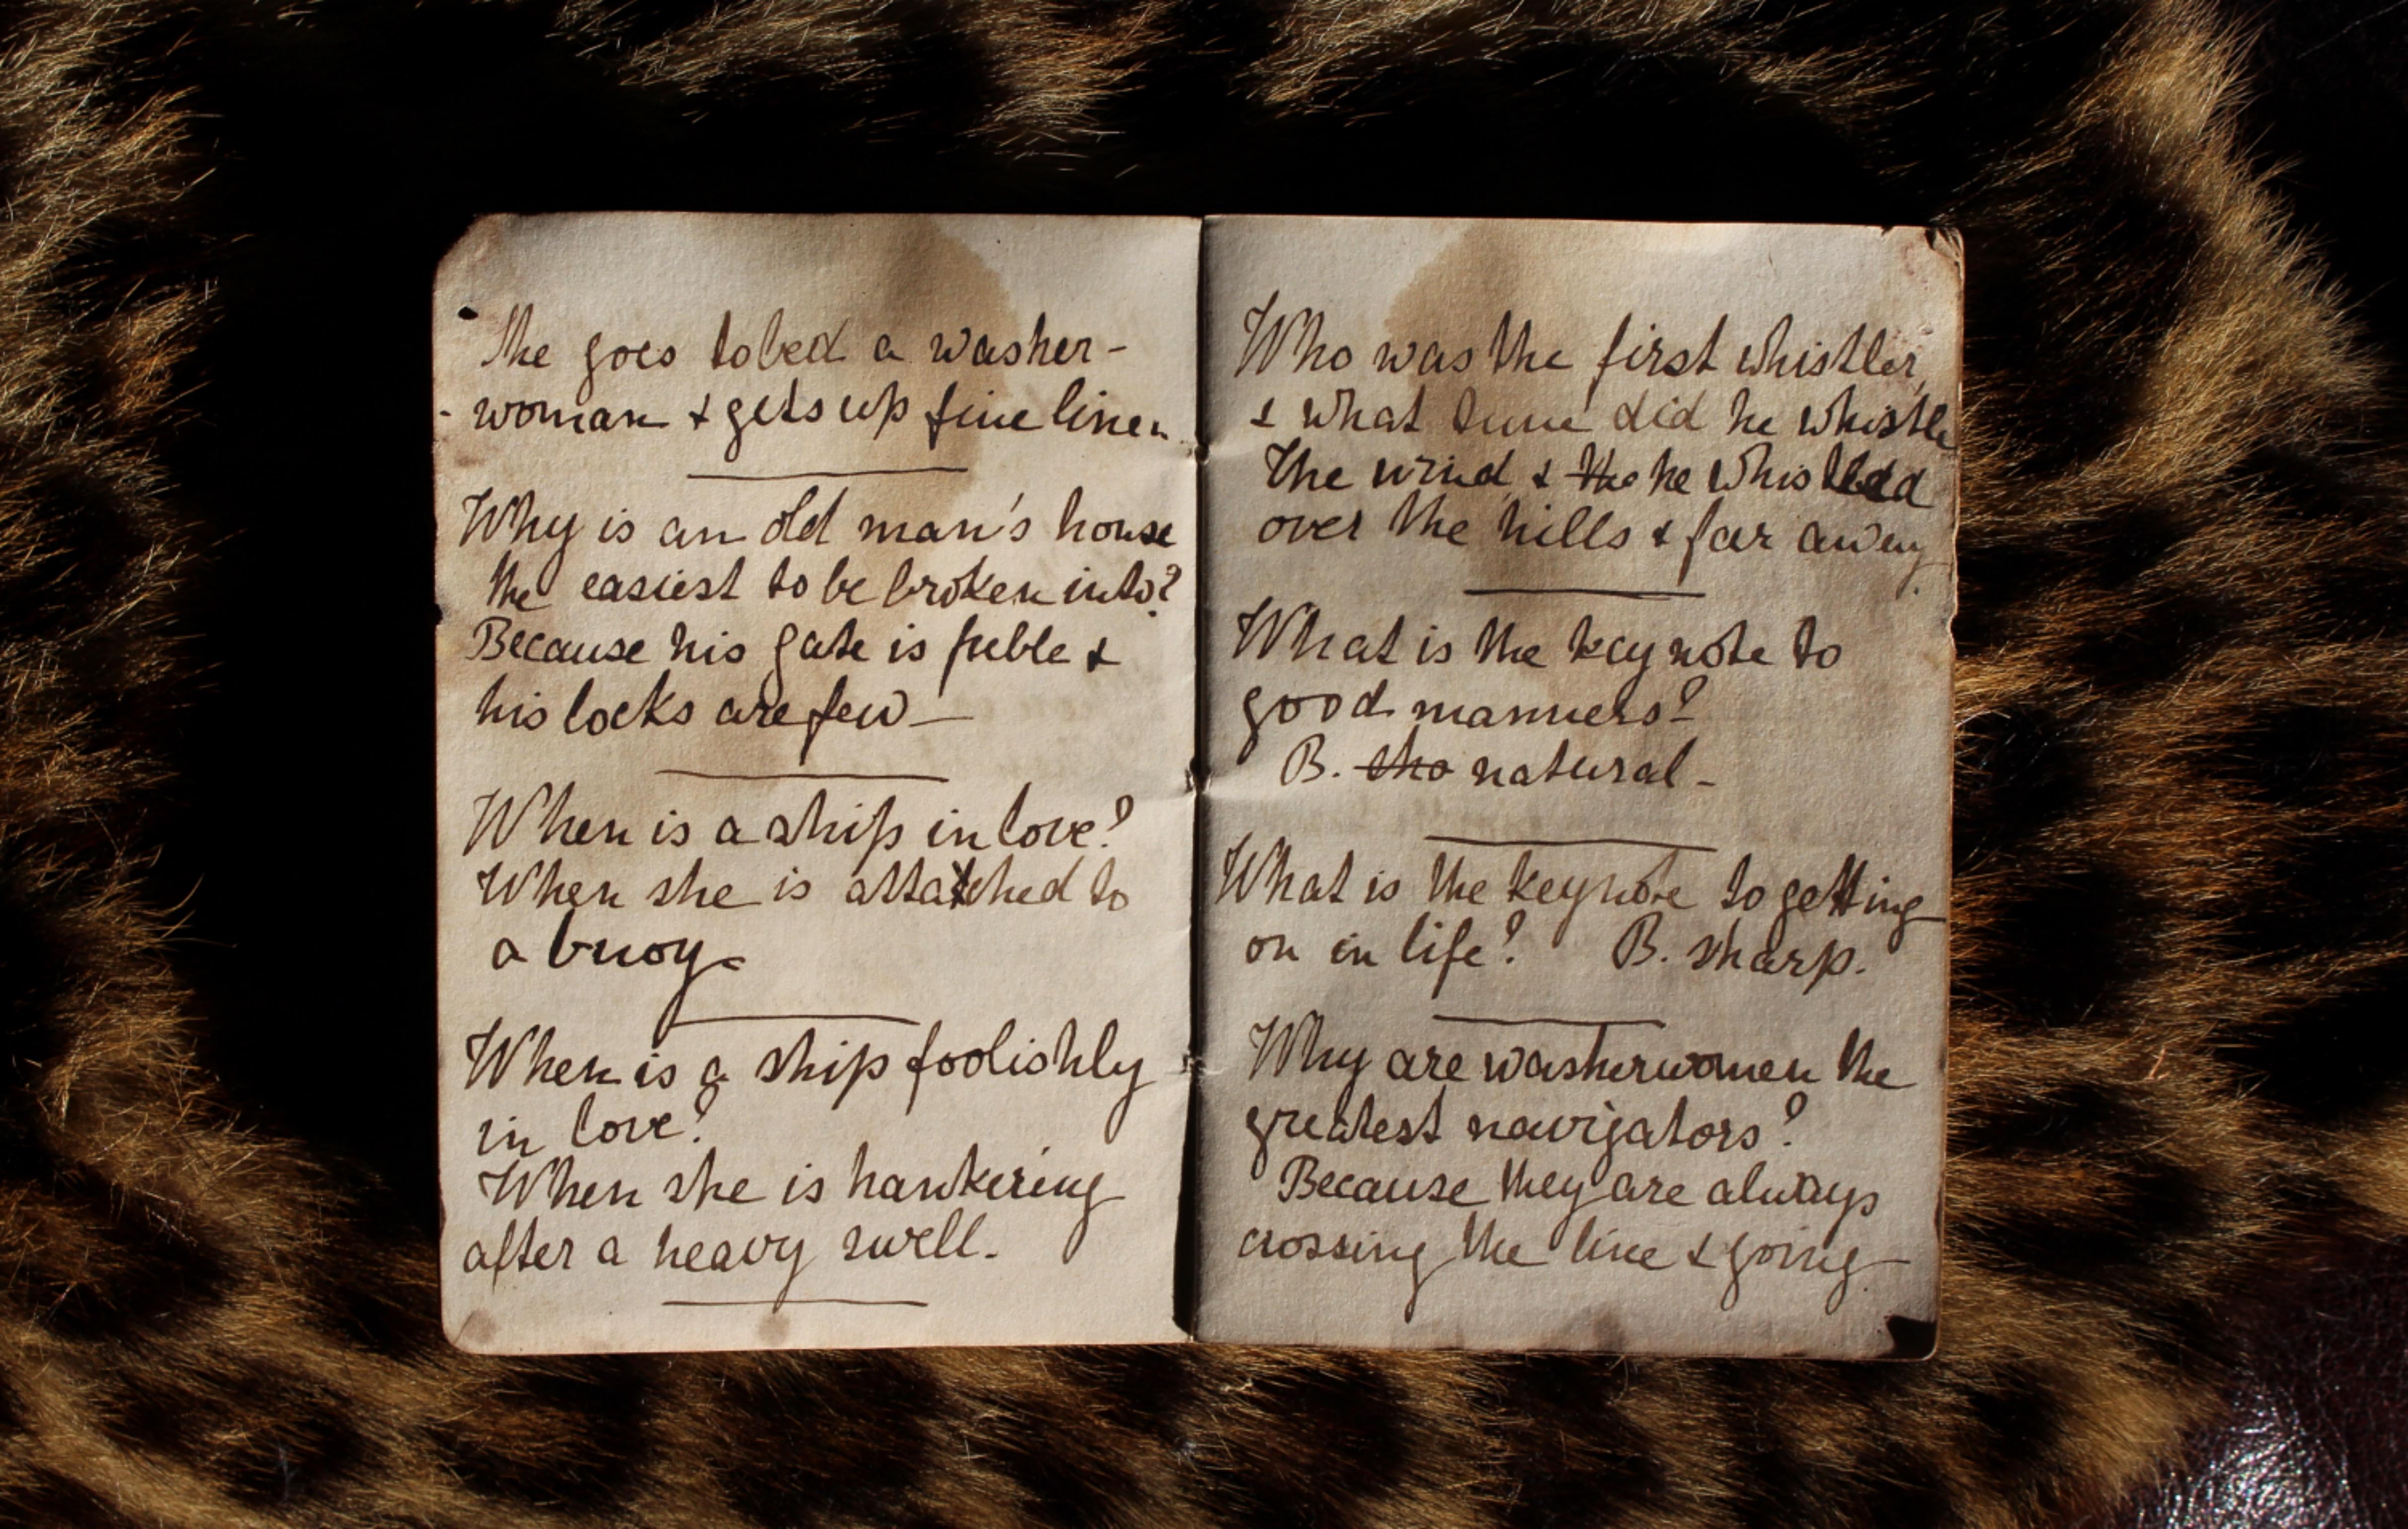 she goes tobed a washer-
- woman & gets up fine linen
Why is an old man's house
the easiest to be broken into?
Because his gate is feeble &
his locks are few—
When is a ship in love?
When she is attatched to
a buoy-
When is a ship foolishly
in love?
When she is hankering
after a heavy swell.
Who was the first whistler,
& what tune did he whistle
The wind, & the he whistled
over the hills & far away.
What is the keynote to
good manners?
B. sha natural-
What is the keynote to getting
on in life? B. sharp.
Why are washerwomen the
greatest navigators?
Because they are always
crossing the line & going